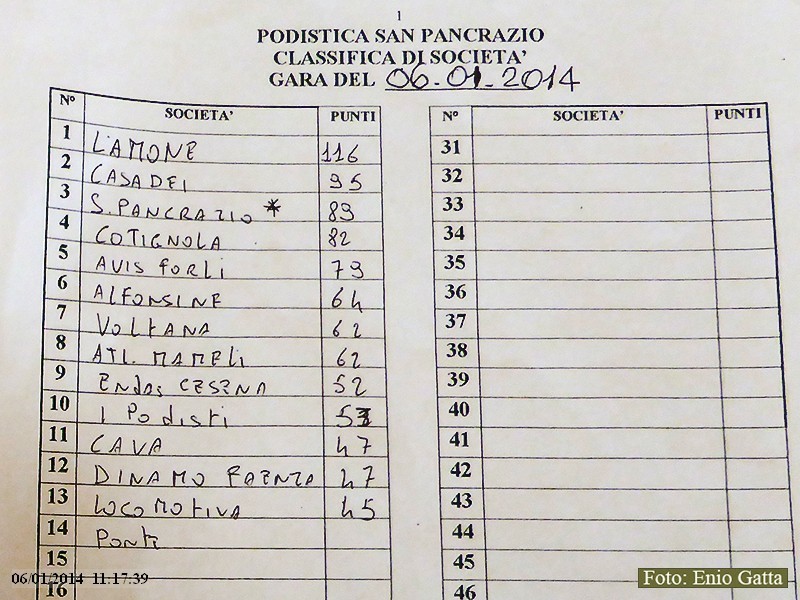 1
PODISTICA SAN PANCRAZIO
CLASSIFICA DI SOCIETA'
GARA DEL 06-01-2014
N° SOCIETA' PUNTI
1 L'AMONE 116
2 CASADEI 95
3 S. PANCRAZIO * 89
4 COTIGNOLA 82
5 AVIS FORLI 79
6 ALFONSINE 64
7 VOLTANA 62
8 ATL. MAMELI 62
9 ENDAS CESENA 52
10 I PODISTI
11 CAVA 47
12 DINAMO FAENZA 47
13 LOCOMOTIVA 45
14 PONTE
15
16
N° SOCIETA' PUNTI
31
32
33
34
35
36
37
38
39
40
41
42
43
44
45
46
06/01/2014 11:17:39
Foto: Enio Gatta